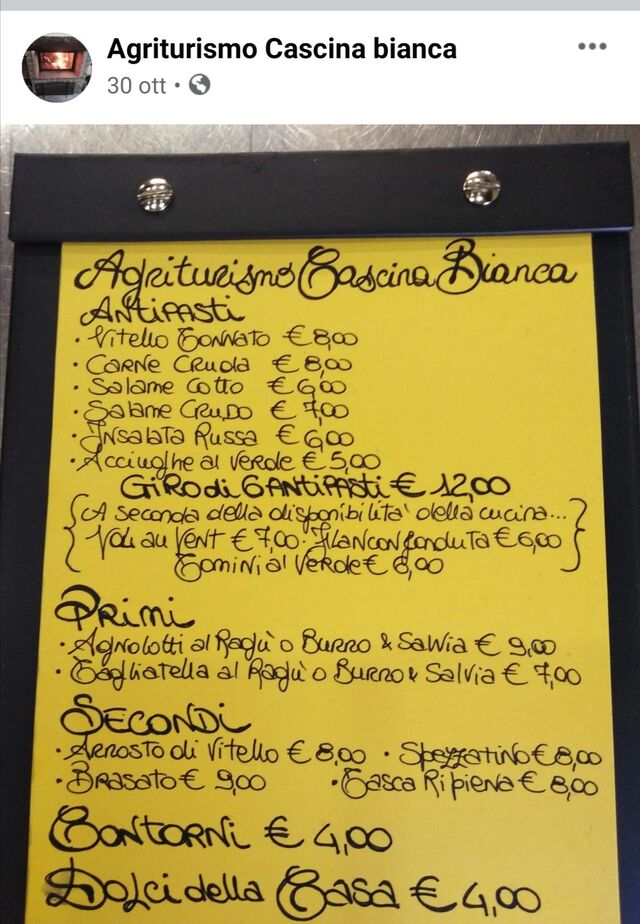 Agriturismo Cascina bianca
30 ott
Agriturismo Cascina Bianca
Antipasti
· Vitello Tonnato € 8,00
· Carne Cruda € 8,00
· Salame Cotto € 6,00
· Salame Crudo € 7,00
· Insalata Russa € 6,00
· Acciughe al verde € 5,00
Giro di 6 Antipasti € 12,00
(A seconda della disponibilita' della cucina...
Vol au Vent € 7,00 · Flan con fonduta € 6,00
Tomini al Verde € 8,00)
Primi
· Agnolotti al Ragù o Burro & Salvia € 9,00
· Tagliatella al Ragù o Burro & Salvia € 7,00
Secondi
· Arrosto di Vitello € 8,00 · Spezzatino € 8,00
· Brasato € 9,00 · Tasca Ripiena € 8,00
Contorni € 4,00
Dolci della Casa € 4,00